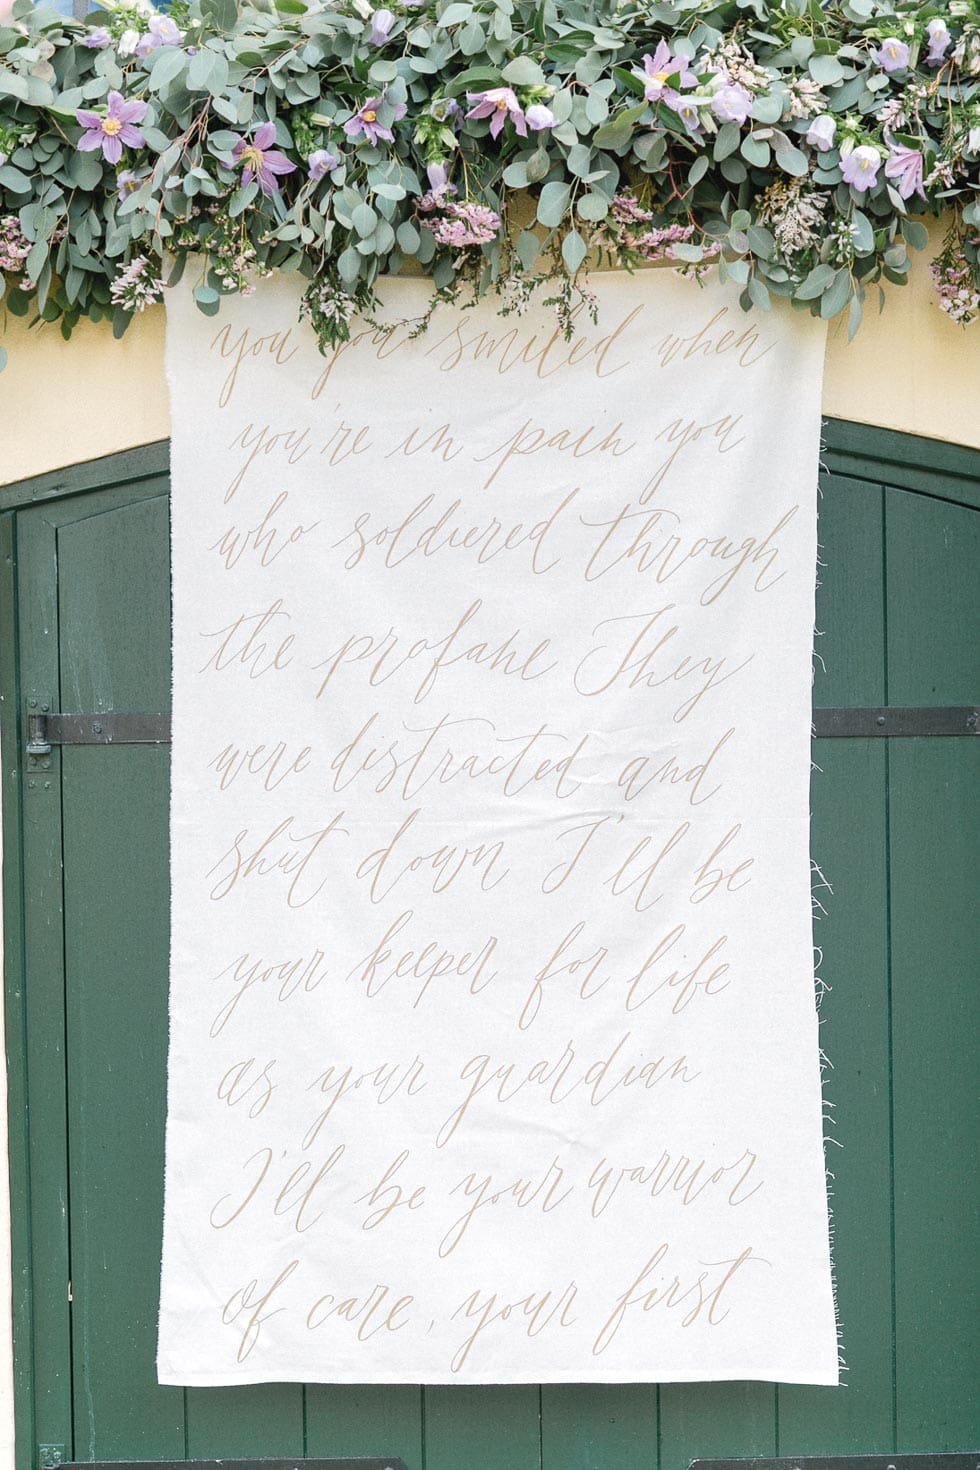 you you smiled when
you're in pain you
who soldiered through
the profane They
were distracted and
shut down I'll be
your keeper for life
as your guardian
I'll be your warrior
of care, your first